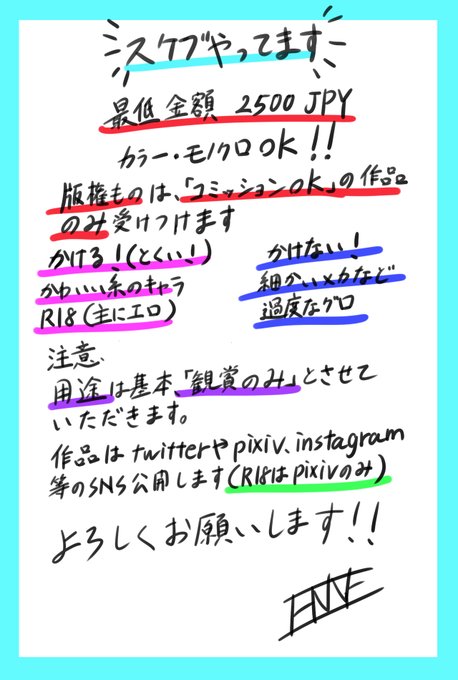 スケブやってます
最低金額 2500 JPY
カラー・モノクロOK!!
版権ものは、「コミッションOK」の作品
のみ受けつけます
かける!(とくい!)
かわいい系のキャラ
R18(主にエロ)
かけない!
細かいメカなど
過度なグロ
注意
用途は基本、「観賞のみ」とさせて
いただきます。
作品はtwitterやpixiv、instagram
等のSNS公開します(R18はpixivのみ)
よろしくお願いします!!
ENNE